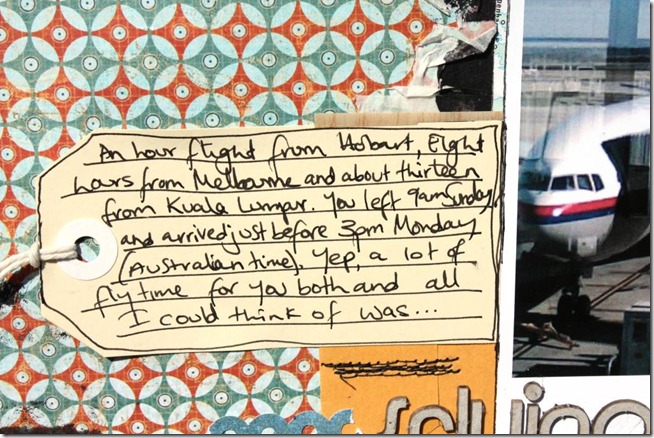 An hour flight from Hobart, Eight
hours from Melbourne and about thirteen
from Kuala Lumpar. You left 9am Sunday,
and arrived just before 3pm Monday
(Australian time), Yep, a lot of
fly time for you both and all
I could think of was...